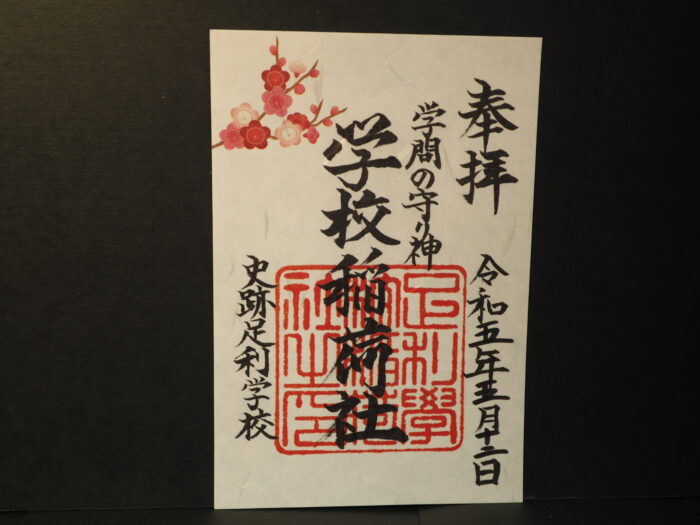 奉拝
令和五年五月十二日
学問の守り神
学校稲荷社
史跡足利学校
足利學
社之印